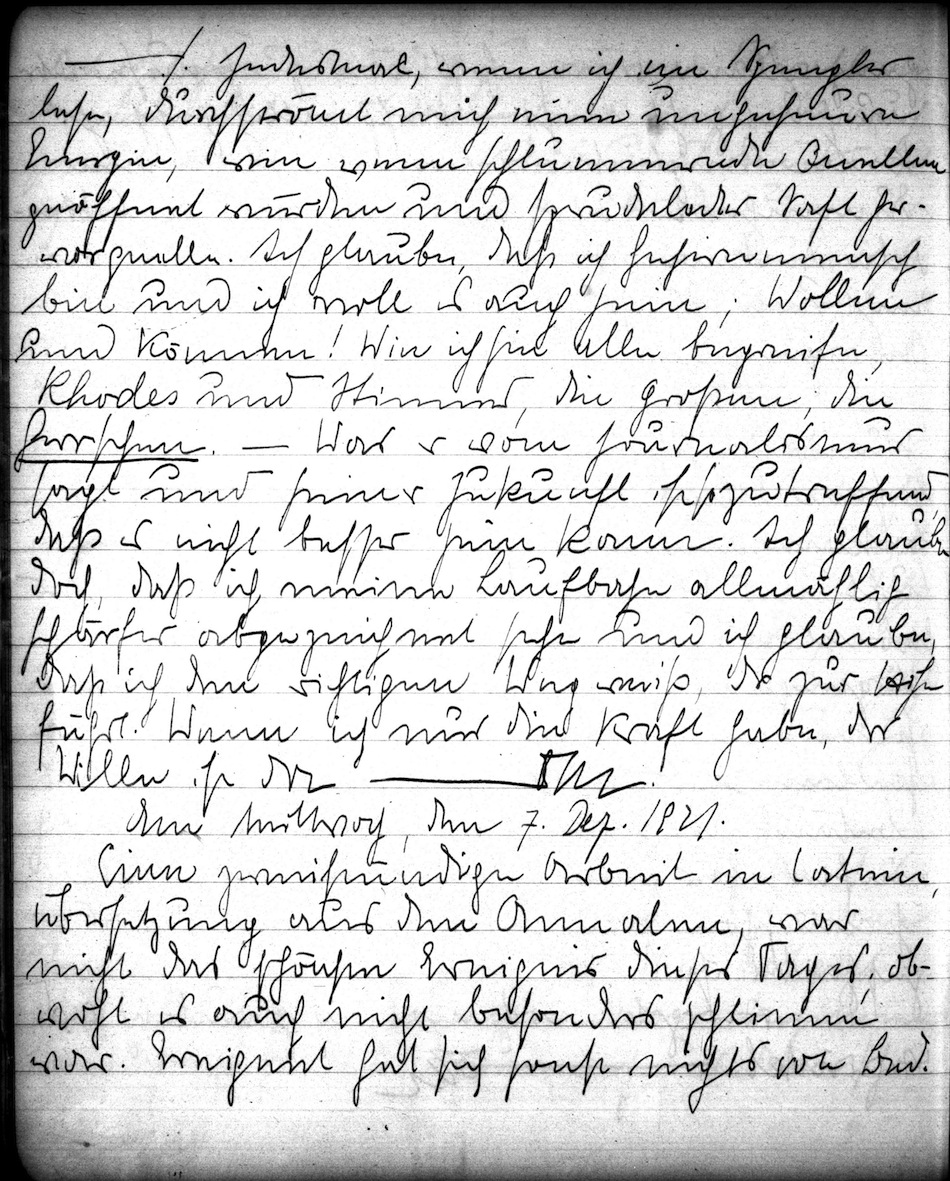 Jedesmal, wenn ich im Spengler
lese, durchströmt mich eine ungeheure
Energie, wie wenn schlummernde Quellen
geöffnet würden und sprudelnder Saft her-
vorquelle. Ich glaube, daß ich Gehirnmensch
bin und ich will es auch sein, Wollen
und Können! Wie ich sie alle begreife,
Rhodes und Stinnes, die großen, die
Herrschen. — Was er vom Journalismus
sagt und seiner Zukunft ist so zutreffend,
daß es nicht besser sein kann. Ich glaube
doch, daß ich meine Laufbahn allmählig
schärfer abgezeichnet sehe und ich glaube,
daß ich den richtigen Weg weiß, der zur Höhe
führt. Wenn ich nur die Kraft habe, der
Willen ist da
den Mittwoch, den 7. Dez. 1921.
Eine zweistündige Arbeit in Latein,
Übersetzung aus den Annalen, war
nicht das schönste Ereignis dieses Tages, ob-
wohl es auch nicht besonders schlimm
war. Ereignet hat sich sonst nichts von Bed.